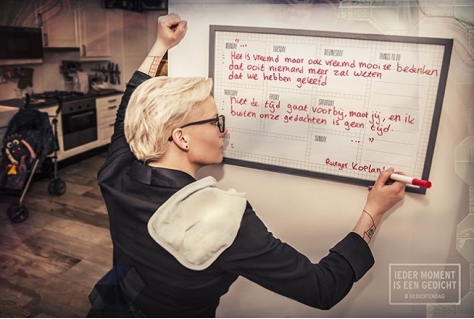 MONDAY TUESDAY WEDNESDAY THINGS TO DO
"...
Het is vreemd maar ook vreemd mooi te bedenken
dat ooit niemand meer zal weten
dat we hebben geleefd
THURSDAY FRIDAY SATURDAY
Niet de tijd gaat voorbij, maar jij, en ik
buiten onze gedachten is geen tijd.
SUNDAY ..."
Rutger Kopland
IEDER MOMENT
IS EEN GEDICHT
# GEDICHTENDAG